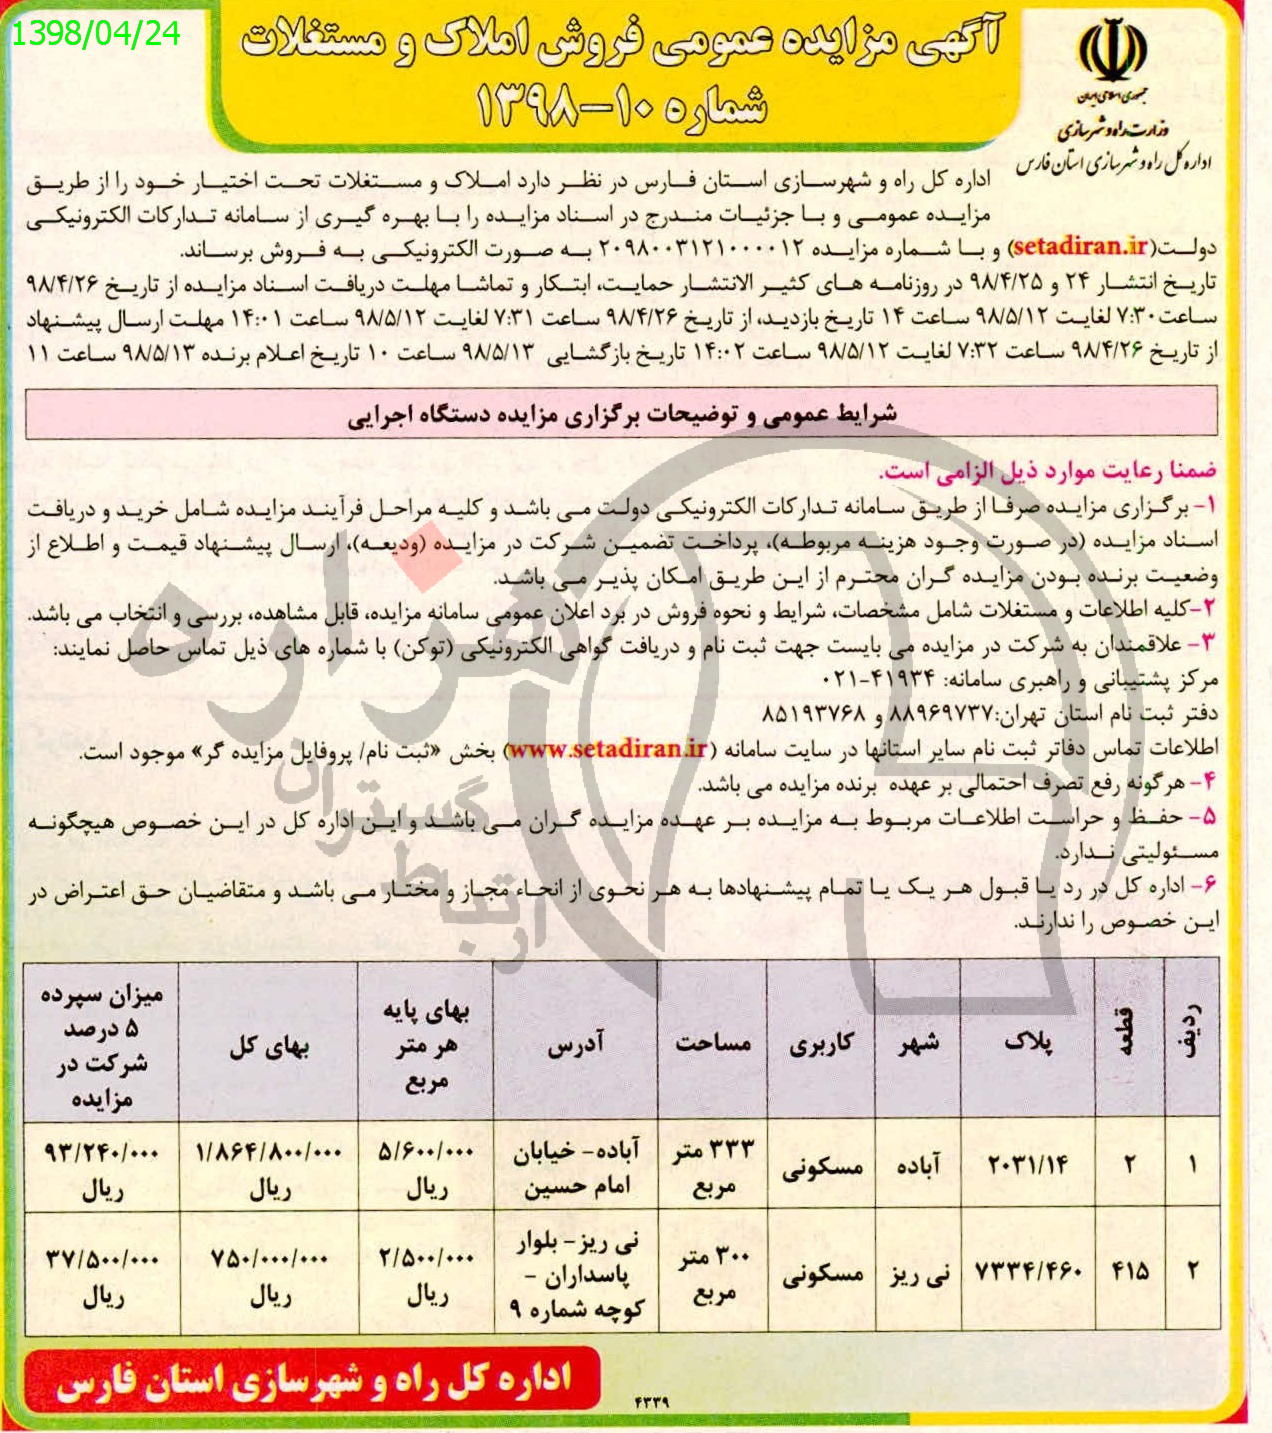 1398/04/24
آگهی مزایده عمومی فروش املاک و مستغلات
شماره ۱۰-۱۳۹۸
جمهوری اسلامی ایران
وزارت راه و شهرسازی
اداره کل راه و شهرسازی استان فارس
اداره کل راه و شهرسازی استان فارس در نظر دارد املاک و مستغلات تحت اختیار خود را از طریق
مزایده عمومی و با جزئیات مندرج در اسناد مزایده را با بهره گیری از سامانه تدارکات الکترونیکی
دولت(setadiran.ir) و با شماره مزایده ۲۰۹۸۰۰۳۱۲۱۰۰۰۰۱۲ به صورت الکترونیکی به فروش برساند.
تاریخ انتشار ۲۴ و ۹۸/۴/۲۵ در روزنامه های کثیر الانتشار حمایت، ابتکار و تماشا مهلت دریافت اسناد مزایده از تاریخ ۹۸/۴/۲۶
ساعت۷:۳۰ لغایت ۹۸/۵/۱۲ ساعت ۱۴ تاریخ بازدید، از تاریخ ۹۸/۴/۲۶ ساعت ۷:۳۱ لغایت ۹۸/۵/۱۲ ساعت ۱۴:۰۱ مهلت ارسال پیشنهاد
از تاریخ ۹۸/۴/۲۶ ساعت ۷:۳۲ لغایت ۹۸/۵/۱۲ ساعت ۱۴:۰۲ تاریخ بازگشایی ۹۸/۵/۱۳ ساعت ۱۰ تاریخ اعلام برنده ۹۸/۵/۱۳ ساعت ۱۱
شرایط عمومی و توضیحات برگزاری مزایده دستگاه اجرایی
ضمنا رعایت موارد ذیل الزامی است.
۱- برگزاری مزایده صرفا از طریق سامانه تدارکات الکترونیکی دولت می باشد و کلیه مراحل فرآیند مزایده شامل خرید و دریافت
اسناد مزایده (در صورت وجود هزینه مربوطه)، پرداخت تضمین شرکت در مزایده (ودیعه)، ارسال پیشنهاد قیمت و اطلاع از
وضعیت برنده بودن مزایده گران محترم از این طریق امکان پذیر می باشد.
۲-کلیه اطلاعات و مستغلات شامل مشخصات، شرایط و نحوه فروش در برد اعلان عمومی سامانه مزایده، قابل مشاهده، بررسی و انتخاب می باشد.
۳- علاقمندان به شرکت در مزایده می بایست جهت ثبت نام و دریافت گواهی الکترونیکی (توکن) با شماره های ذیل تماس حاصل نمایند:
مرکز پشتیبانی و راهبری سامانه: ۴۱۹۳۴-۰۲۱
دفتر ثبت نام استان تهران:۸۸۹۶۹۷۳۷ و ۸۵۱۹۳۷۶۸
اطلاعات تماس دفاتر ثبت نام سایر استانها در سایت سامانه (www.setadiran.ir) بخش «ثبت نام/ پروفایل مزایده گر» موجود است.
۴- هرگونه رفع تصرف احتمالی بر عهده برنده مزایده می باشد.
۵- حفظ و حراست اطلاعات مربوط به مزایده بر عهده مزایده گران می باشد و این اداره کل در این خصوص هیچگونه
مسئولیتی ندارد.
۶- اداره کل در رد یا قبول هر یک یا تمام پیشنهادها به هر نحوی از انحاء مجاز و مختار می باشد و متقاضیان حق اعتراض در
این خصوص را ندارند.
هزاره
ارتباط گستران
ردیف قطعه پلاک شهر کاربری مساحت آدرس بهای پایه هر متر مربع بهای کل میزان سپرده ۵ درصد شرکت در مزایده
۱ ۲ ۲۰۳۱/۱۴ آباده مسکونی ۳۳۳ متر مربع آباده- خیابان امام حسین ۵/۶۰۰/۰۰۰ ریال ۱/۸۶۴/۸۰۰/۰۰۰ ریال ۹۳/۲۴۰/۰۰۰ ریال
۲ ۴۱۵ ۷۳۳۴/۴۶۰ نی ریز مسکونی ۳۰۰ متر مربع نی ریز- بلوار پاسداران - کوچه شماره ۹ ۲/۵۰۰/۰۰۰ ریال ۷۵۰/۰۰۰/۰۰۰ ریال ۳۷/۵۰۰/۰۰۰ ریال
اداره کل راه و شهرسازی استان فارس
۴۳۳۹